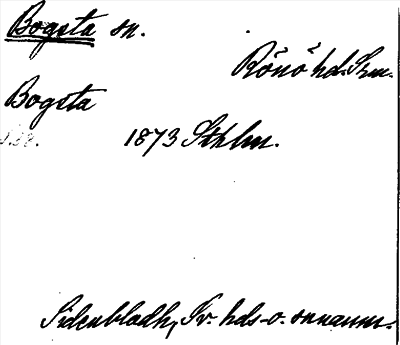 Bogsta sn.
Rönö hd. Srm.
Bogsta
1873 Sthlm.
Sidenbladh, Sv. hds- o. snnamn.